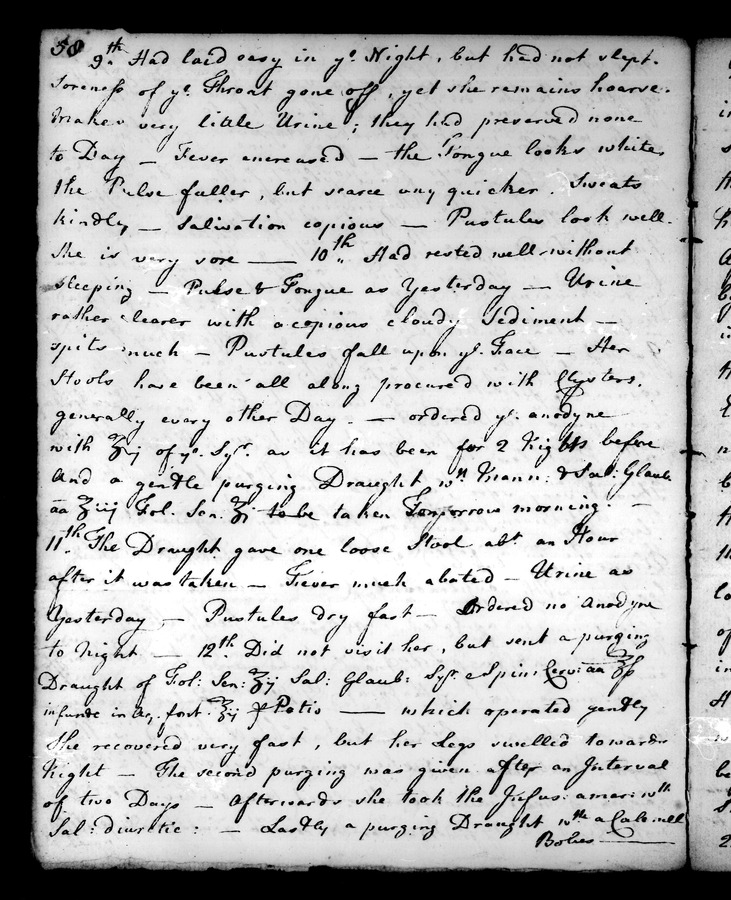 58
9.th Had laid easy in ye. Night, but had not slept.
Soreness of ye. Throat gone off, yet she remains hoarse.
Makes very little Urine; they had preserved none
to Day — Fever encreased — the Tongue looks white,
the Pulse fuller, but scarce any quicker. Sweats
kindly — Salivation copious — Pustules look well.
She is very sore — 10.th Had rested well without
sleeping — Pulse & Tongue as Yesterday — Urine
rather clearer with a copious cloudy Sediment —
spits much — Pustules fall upon ye. Face — Her
Stools have been all along procured with Clysters,
generally every other Day. — ordered ye. anodyne
with ʒij of ye. Syr. as it has been for 2 Nights before
And a gentle purging Draught wth Mann: & Sal: Glaub:
aa ʒiij Fol. Sen. ʒj to be taken Tomorrow morning. —
11.th The Draught gave one loose Stool abt. an Hour
after it was taken — Fever much abated — Urine as
Yesterday — Pustules dry fast — Ordered no Anodyne
to Night — 12.th Did not visit her, but sent a purging
Draught of Fol: Sen: ʒij Sal: Glaub: Syr. e Spin: Cerv: aa ℥ß
infunde in Aq. font. ℥ij Potio — which operated gently
She recovered very fast, but her Legs swelled towards
Night — The second purging was given after an Interval
of two Days — afterwards she took the Infus: amar: wth
Sal: diuretic: — Lastly a purging Draught wth a Calomell
Bolus —